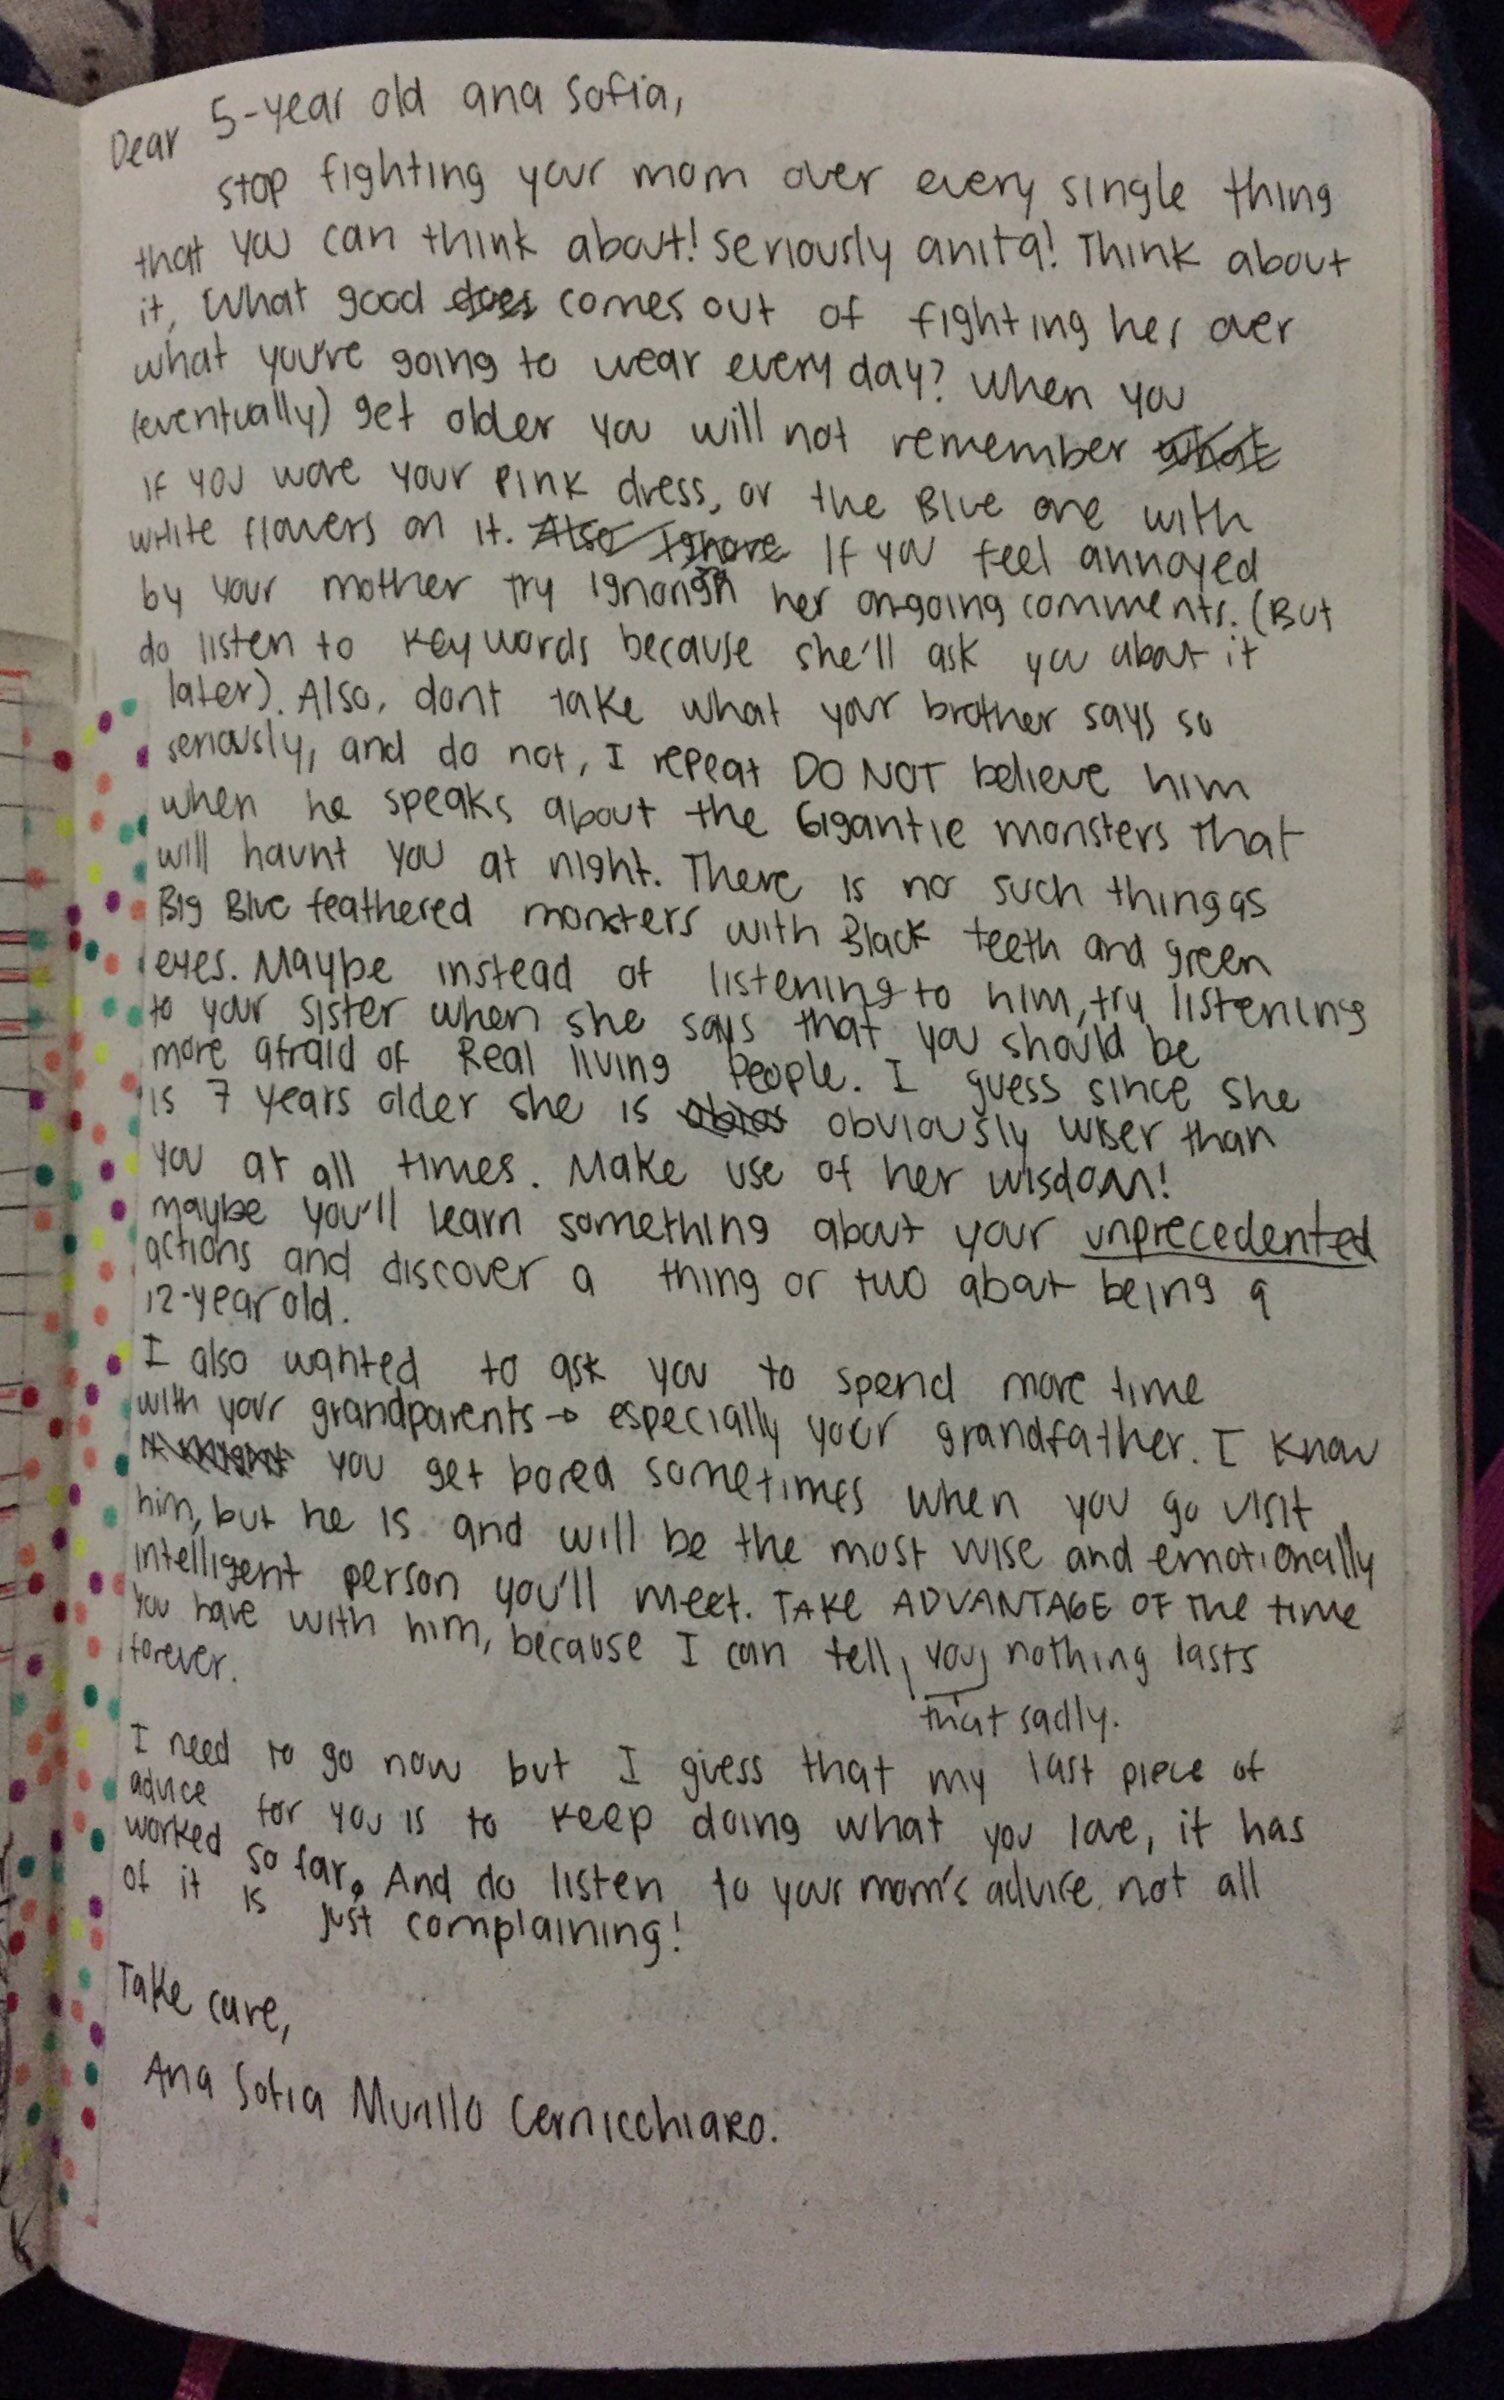 Dear 5-year old ana sofia,
stop fighting your mom over every single thing
that you can think about! seriously anita! Think about
it, What good does comes out of fighting her over
what you're going to wear every day? When you
(eventually) get older you will not remember what
if you wore your pink dress, or the Blue one with
white flowers on it. Also Ignore If you feel annoyed
by your mother try ignoring her on-going comments. (But
do listen to key words because she'll ask you about it
later). Also, dont take what your brother says so
seriously, and do not, I repeat DO NOT believe him
when he speaks about the Gigantic monsters that
will haunt you at night. There is no such thing as
Big Blue feathered monsters with Black teeth and green
eyes. Maybe instead of listening to him, try listening
to your sister when she says that you should be
more afraid of Real living People. I guess since she
is 7 years older she is obios obviously wiser than
you at all times. Make use of her wisdom!
maybe you'll learn something about your unprecedented
actions and discover a thing or two about being a
12-year old.
I also wanted to ask you to spend more time
with your grandparents → especially your grandfather. I know
it might you get bored sometimes when you go visit
him, but he is and will be the most wise and emotionally
intelligent person you'll meet. TAKE ADVANTAGE OF THE time
you have with him, because I can tell, you, nothing lasts
forever.
that sadly.
I need to go now but I guess that my last piece of
advice for you is to keep doing what you love, it has
worked so far. And do listen to your mom's advice, not all
of it is just complaining!
Take care,
Ana Sofia Murillo Cernicchiaro.